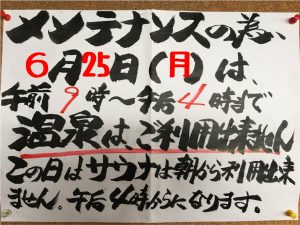 メンテナンスの為、
6月25日(月)は、
午前9時~午后4時まで
温泉は、ご利用出来ません
この日はサウナは朝から利用出来
ません。午后4時からになります。